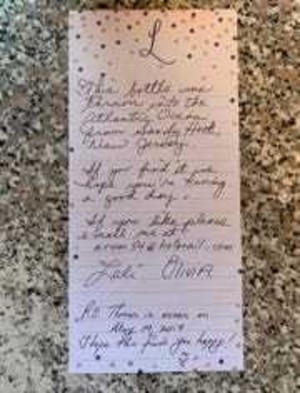 L
This bottle was
thrown into the
Atlantic Ocean
from Sandy Hook,
New Jersey.
If you find it we
hope you're having
a good day.
If you like please
email me at
@hotmail.com
Olivia
P.S. Thrown in ocean on
2019
I hope this finds you happy!